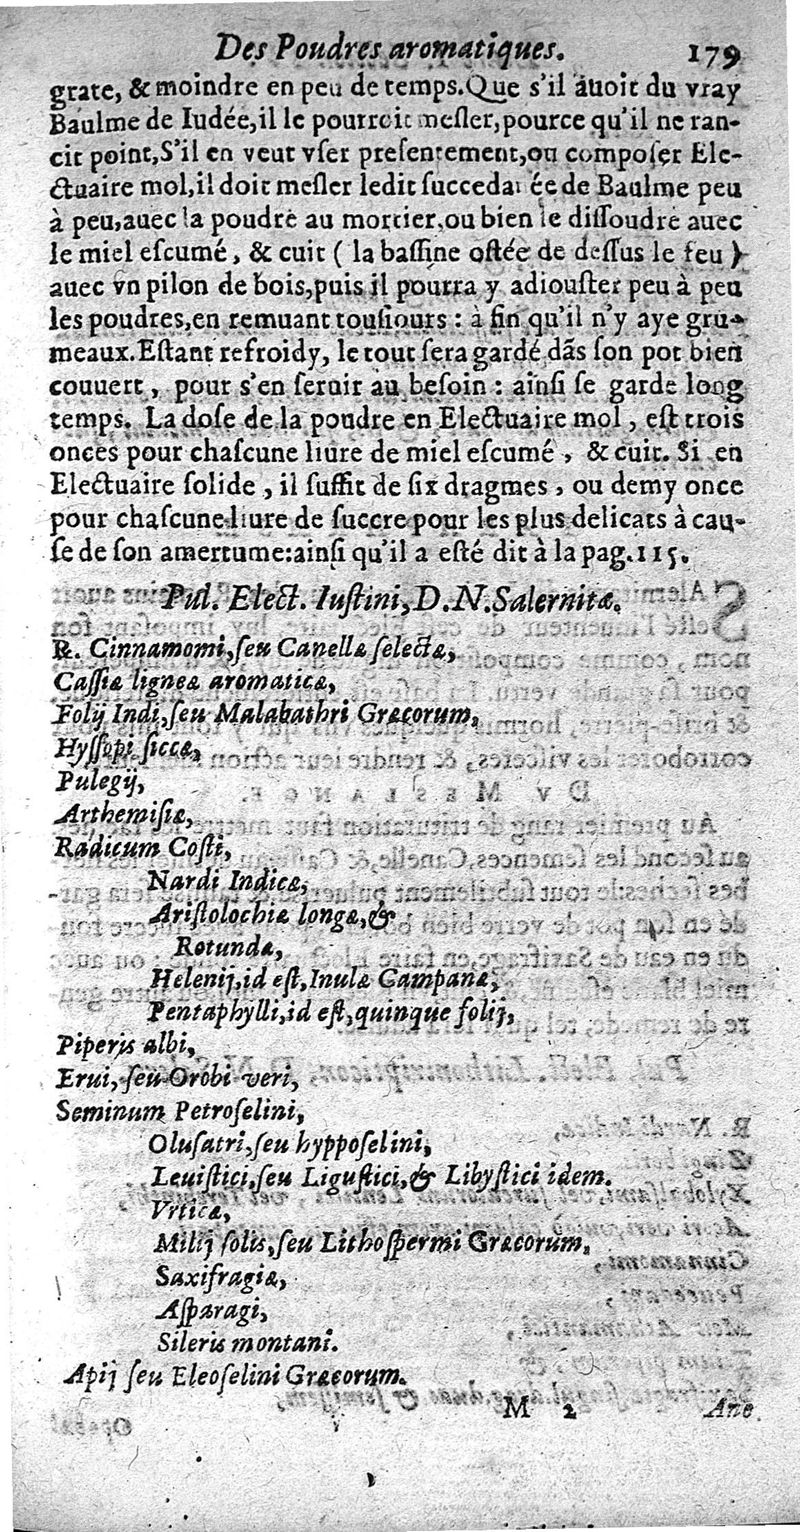 Des Poudres aromatiques. 179
grate, & moindre en peu de temps. Que s'il auoit du vray
Baulme de Iudée, il le pourroit mesler, pource qu'il ne ran-
cit point, S'il en veut vser presentement, ou composer Ele-
ctuaire mol, il doit mesler ledit succedanée de Baulme peu
à peu, auec la poudre au mortier, ou bien le dissoudre auec
le miel escumé, & cuit ( la bassine ostée de dessus le feu )
auec vn pilon de bois, puis il pourra y adiouster peu à peu
les poudres, en remuant tousiours : à fin qu'il n'y aye gru-
meaux. Estant refroidy, le tout sera gardé dãs son pot bien
couuert, pour s'en seruir au besoin : ainsi se garde long
temps. La dose de la poudre en Electuaire mol, est trois
onces pour chascune liure de miel escumé, & cuit. Si en
Electuaire solide, il suffit de six dragmes, ou demy once
pour chascune liure de succre pour les plus delicats à cau-
se de son amertume: ainsi qu'il a esté dit à la pag. 115.
Pul. Elect. Iustini, D. N. Salernitæ.
℞. Cinnamomi, seu Canellæ selectæ,
Cassiæ ligneæ aromaticæ,
Folij Indi, seu Malabathri Græcorum,
Hyssopi siccæ,
Pulegij,
Arthemisiæ,
Radicum Costi,
Nardi Indicæ,
Aristolochiæ longæ, &
Rotundæ,
Helenij, id est, Inulæ Campanæ,
Pentaphylli, id est, quinque folij,
Piperis albi,
Erui, seu Orobi veri,
Seminum Petroselini,
Olusatri, seu hypposelini,
Leuistici, seu Ligustici, & Libystici idem.
Vrticæ,
Milij solis, seu Lithospermi Græcorum,
Saxifragiæ,
Asparagi,
Sileris montani.
Apij seu Eleoselini Græcorum.
M 2 Ane